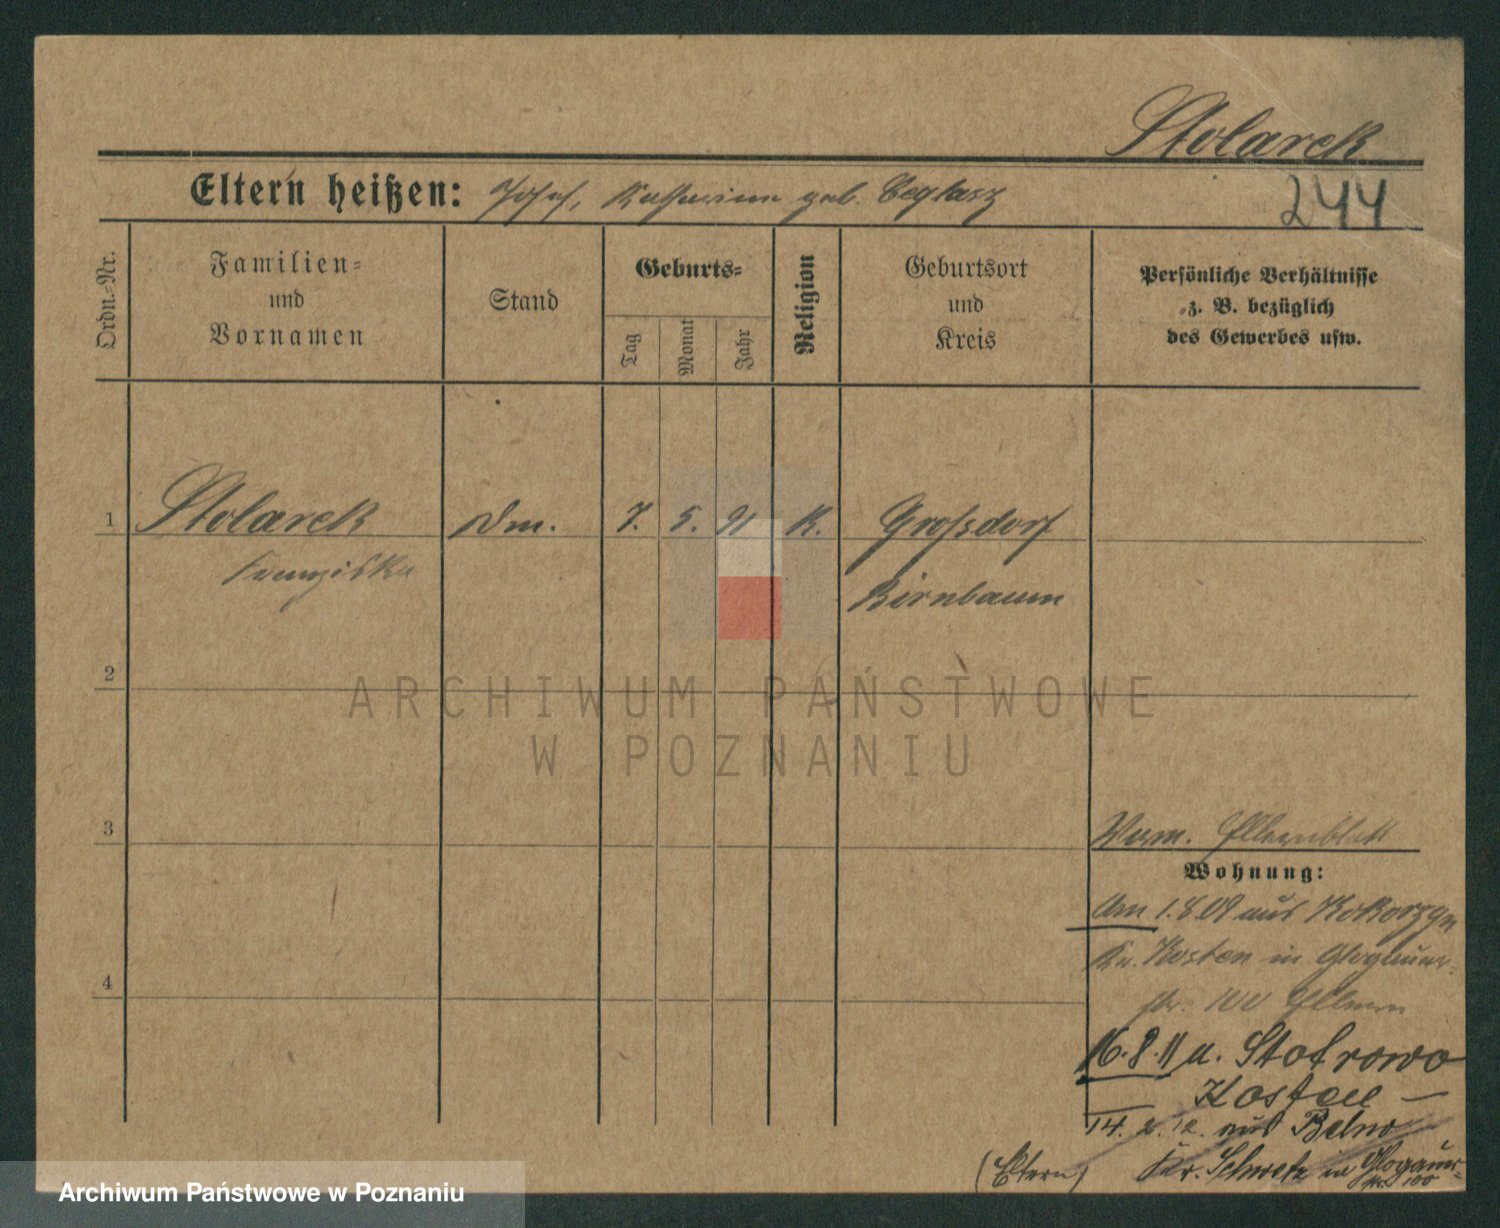 Stolarek
Eltern heißen: Josef, Katharina geb. Ceglarz
244
Ordn.-Nr.
Familien- und Vornamen
Stand
Geburts-
Tag
Monat
Jahr
Religion
Geburtsort und Kreis
Persönliche Verhältnisse
z. B. bezüglich
des Gewerbes usw.
1 Stolarek Dm. 7. 5. 91 K. Grossdorf
Franziska Birnbaum
2
3
Elternblatt
Wohnung:
Am 1.8.09 aus Kokorzyn
Kr. Kosten in Glogauer-
str. 100 Eltern
16.8.11 a. Kosten
14. 2. 12. aus
(Eltern) Kr. Schwetz in Glogauer-
str. 100
4
ARCHIWUM PAŃSTWOWE
W POZNANIU
Archiwum Państwowe w Poznaniu